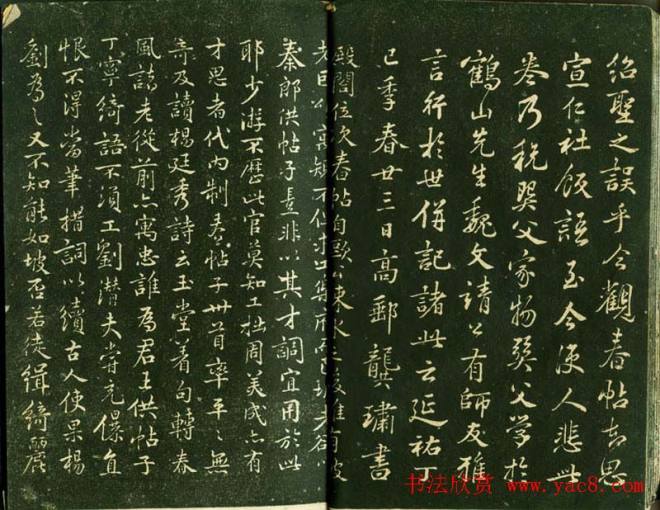 紹聖之誤乎今觀春帖知思
宣仁社飯語至今使人悲此
卷乃稅巽父家物巽父學於
鶴山先生魏文靖公有師友雅
言行於世併記諸此云延祐丁
巳季春廿三日高郵龔璛書
殿閣位次春帖自歐
秦郎供帖子豈非以其才調宜用於此
耶少游不歷此官莫知工拙周美成亦有
才思者代內制春帖子卅首率平平無
奇及讀楊廷秀詩云玉堂著句轉春
風諸老從前亦寓忠誰為君王供帖子
丁寧綺語不須工劉潛夫嘗充傔直
恨不得當筆措詞以續古人使果楊
劉為之又不知能如坡否若徒緝綺麗
书法欣赏 www.yac8.com